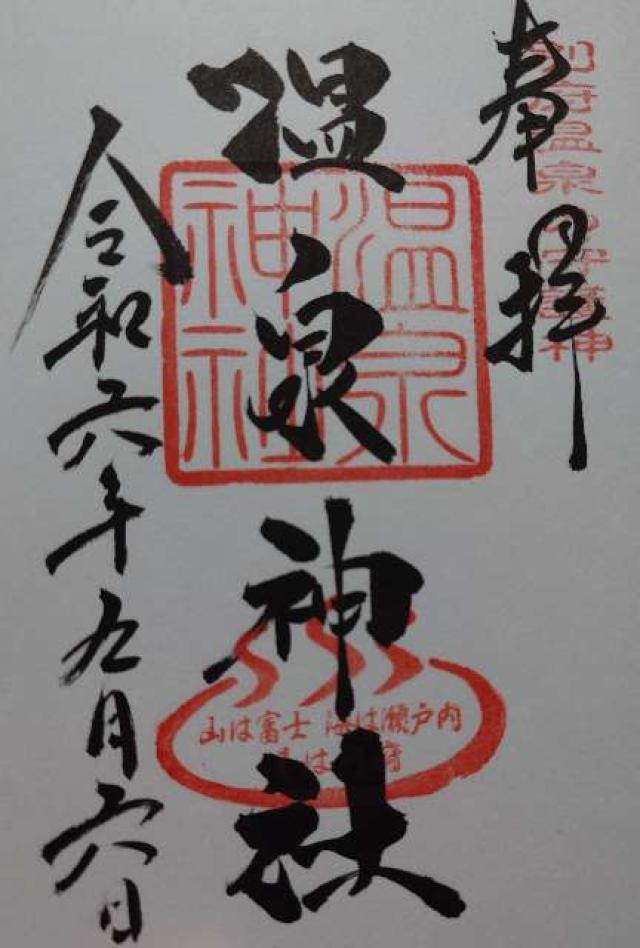 奉拝
別府温泉の守護神
温泉神社
温泉
神社
山は富士 海は瀬戸内
は
令和六年九月六日